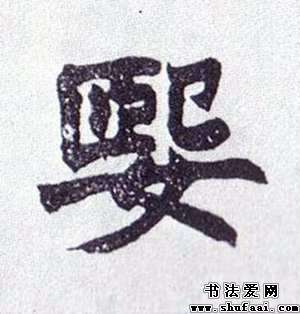 媐
书法爱网
www.shufaai.com